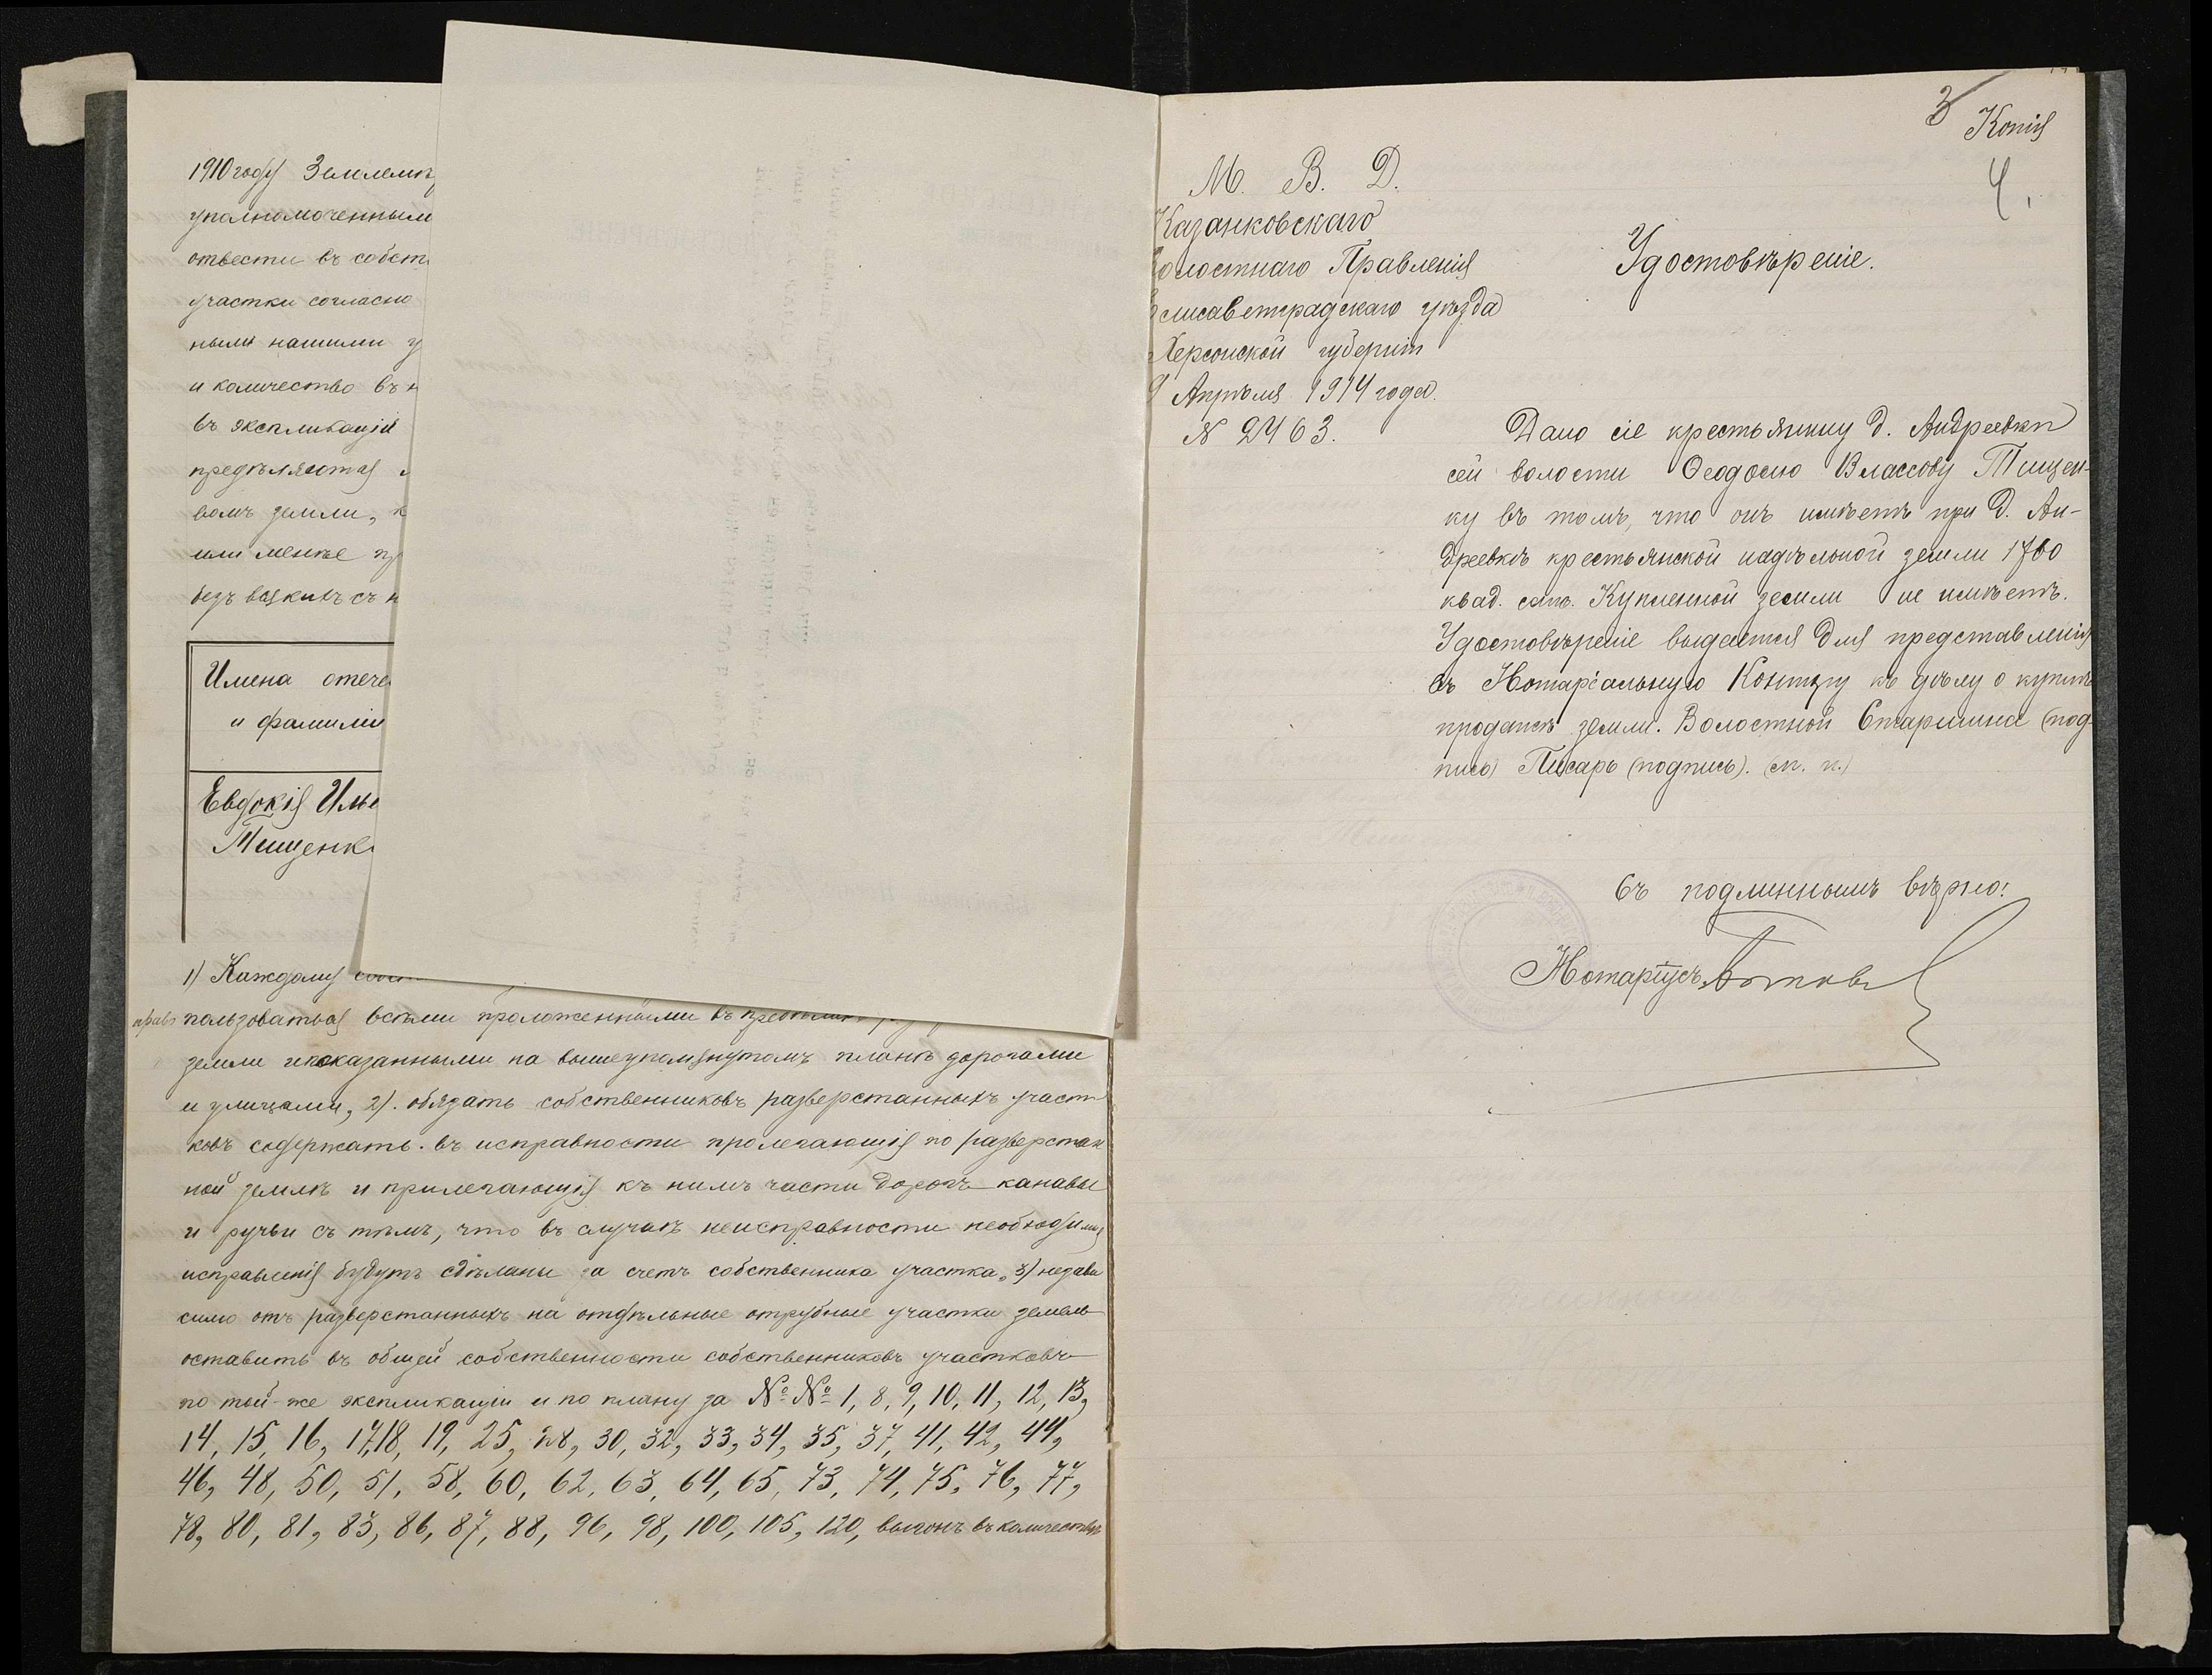 1910 году Землемѣ
уполномоченным
отвести въ собст
участки согласно
ными нашими у
и количество въ
въ экспликаціи
предѣляются
вомъ земли,
или менѣе пр
Имена отече
и фамиліи
Евдокія Илье
Тищенк
1) Каждому собст
право пользоваться всѣми проложенными въ
земли и показанными на вышеупомянутомъ планѣ дорогами
и улицами, 2). обязать собственниковъ разверстанныхъ участ
ковъ содержать въ исправности пролегающія по разверстан
ной землѣ и прилегающія къ нимъ части дорогъ канавы
и ручьи съ тѣмъ, что въ случаѣ неисправности необходимыя
исправленія будутъ сдѣланы за счетъ собственника участка, 3) незави
симо отъ разверстанныхъ на отдѣльные отрубные участки земель
оставить въ общей собственности собственниковъ участковъ
по той-же экспликаціи и по плану за №№ 1, 8, 9, 10, 11, 12, 13,
14, 15, 16, 17, 18, 19, 25, 28, 30, 32, 33, 34, 35, 37, 41, 42, 44,
46, 48, 50, 51, 58, 60, 62, 63, 64, 65, 73, 74, 75, 76, 77,
78, 80, 81, 83, 86, 87, 88, 96, 98, 100, 105, 120, выгонъ въ количествѣ
3
Копія
4.
М. В. Д.
Казанковскаго
олостнаго Правленія
лисаветградскаго уѣзда
Херсонской губерніи
9 Апрѣля 1914 года.
N 2463.
Удостовѣреніе.
Дано сіе крестьянину д. Андреевки
сей волости Ѳеодосію Влассову Тищен-
ку въ томъ, что онъ имѣетъ при д. Ан-
дреевкѣ крестьянской надѣльной земли 1760
квад. саж. Купленной земли не имѣетъ.
Удостовѣреніе выдается для представленія
въ Нотаріальную Контору къ дѣлу о куплѣ
продажѣ земли. Волостной Старшина (под-
пись) Писарь (подпись). (м. п.)
Съ подлиннымъ вѣрно:
Нотаріусъ